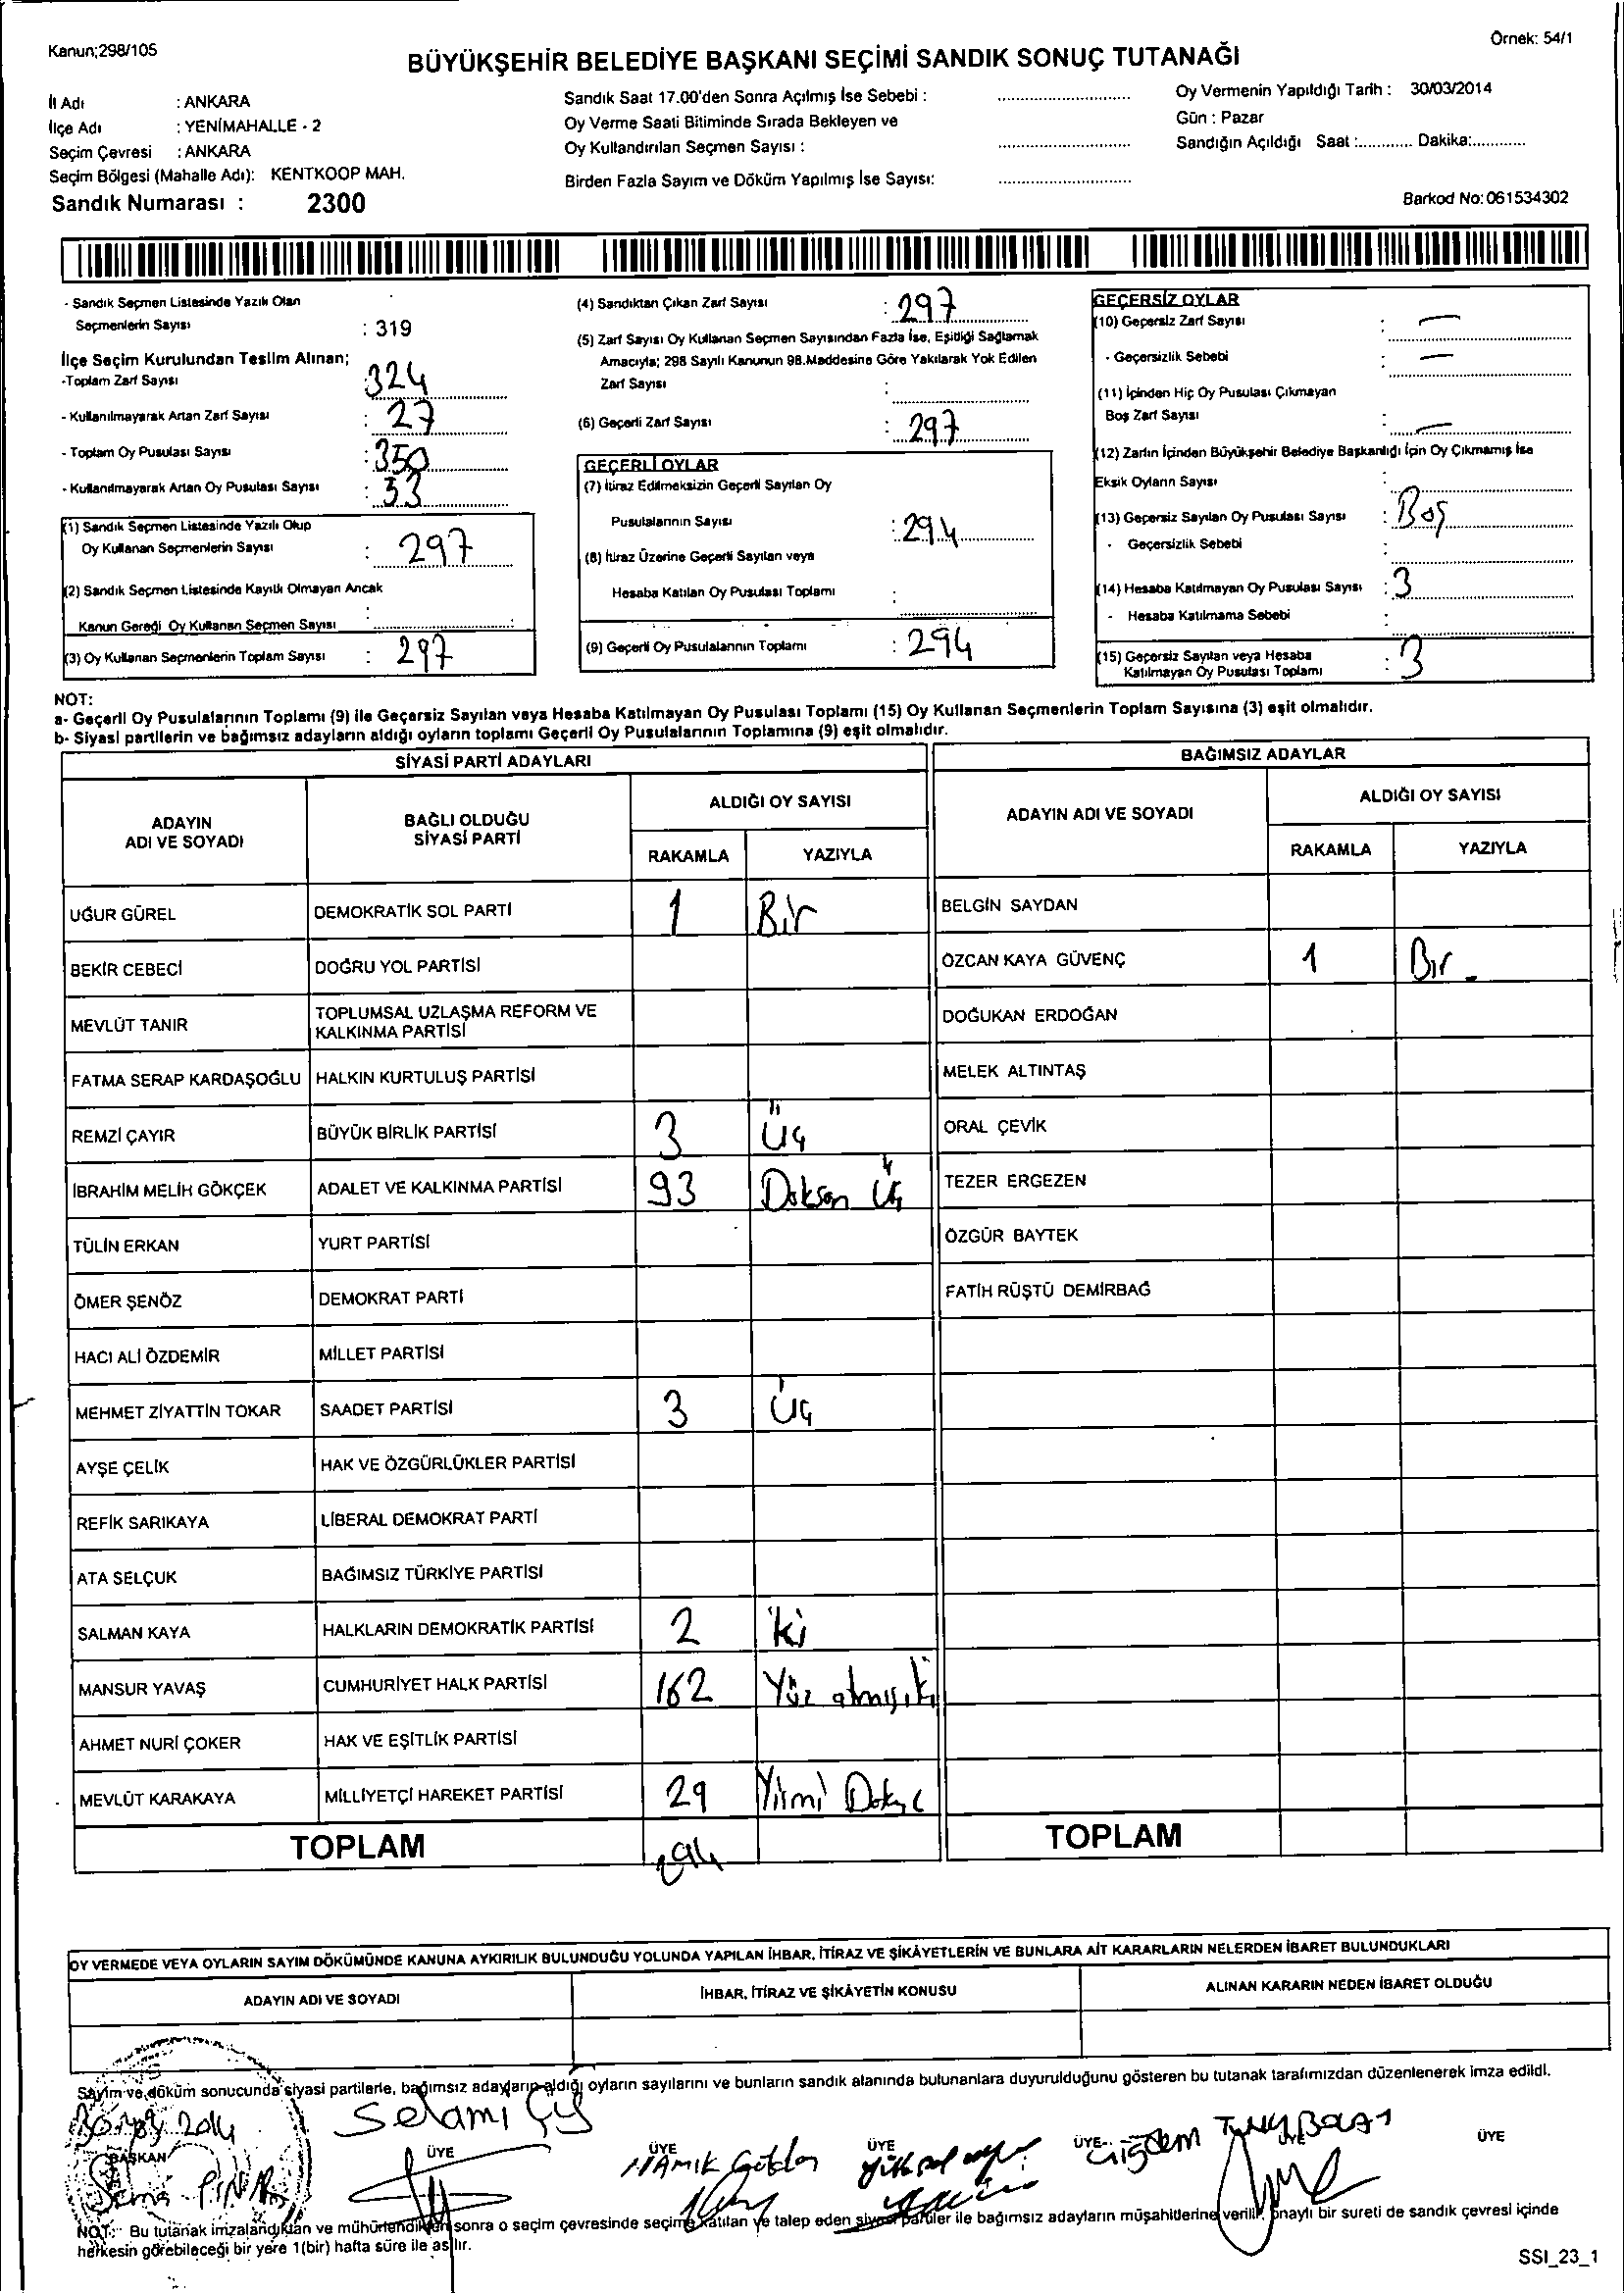 Kanun;298/105
Örnek: 54/1
BÜYÜKŞEHİR BELEDİYE BAŞKANI SEÇİMİ SANDIK SONUÇ TUTANAĞI
İl Adı : ANKARA
İlçe Adı : YENİMAHALLE - 2
Seçim Çevresi : ANKARA
Seçim Bölgesi (Mahalle Adı): KENTKOOP MAH.
Sandık Numarası : 2300
Sandık Saat 17.00'den Sonra Açılmış İse Sebebi :
Oy Verme Saati Bitiminde Sırada Bekleyen ve
Oy Kullandırılan Seçmen Sayısı :
Birden Fazla Sayım ve Döküm Yapılmış İse Sayısı:
Oy Vermenin Yapıldığı Tarih : 30/03/2014
Gün : Pazar
Sandığın Açıldığı Saat :............ Dakika:............
Barkod No: 061534302
- Sandık Seçmen Listesinde Yazılı Olan
Seçmenlerin Sayısı : 319
İlçe Seçim Kurulundan Teslim Alınan;
-Toplam Zarf Sayısı : 324
- Kullanılmayarak Artan Zarf Sayısı : 27
- Toplam Oy Pusulası Sayısı : 350
- Kullanılmayarak Artan Oy Pusulası Sayısı : 53
(1) Sandık Seçmen Listesinde Yazılı Olup
Oy Kullanan Seçmenlerin Sayısı : 297
(2) Sandık Seçmen Listesinde Kayıtlı Olmayan Ancak
Kanun Gereği Oy Kullanan Seçmen Sayısı :
(3) Oy Kullanan Seçmenlerin Toplam Sayısı : 297
(4) Sandıktan Çıkan Zarf Sayısı : 297
(5) Zarf Sayısı Oy Kullanan Seçmen Sayısından Fazla İse, Eşitliği Sağlamak
Amacıyla; 298 Sayılı Kanunun 98.Maddesine Göre Yakılarak Yok Edilen
Zarf Sayısı :
(6) Geçerli Zarf Sayısı : 297
GEÇERLİ OYLAR
(7) İtiraz Edilmeksizin Geçerli Sayılan Oy
Pusulalarının Sayısı : 294
(8) İtiraz Üzerine Geçerli Sayılan veya
Hesaba Katılan Oy Pusulası Toplamı :
(9) Geçerli Oy Pusulalarının Toplamı : 294
GEÇERSİZ OYLAR
(10) Geçersiz Zarf Sayısı : —
- Geçersizlik Sebebi : —
(11) İçinden Hiç Oy Pusulası Çıkmayan
Boş Zarf Sayısı : —
(12) Zarfın İçinden Büyükşehir Belediye Başkanlığı İçin Oy Çıkmamış İse
Eksik Oyların Sayısı :
(13) Geçersiz Sayılan Oy Pusulası Sayısı : Boş
- Geçersizlik Sebebi :
(14) Hesaba Katılmayan Oy Pusulası Sayısı : 3
- Hesaba Katılmama Sebebi :
(15) Geçersiz Sayılan veya Hesaba
Katılmayan Oy Pusulası Toplamı : 3
NOT:
a- Geçerli Oy Pusulalarının Toplamı (9) ile Geçersiz Sayılan veya Hesaba Katılmayan Oy Pusulası Toplamı (15) Oy Kullanan Seçmenlerin Toplam Sayısına (3) eşit olmalıdır.
b- Siyasi partilerin ve bağımsız adayların aldığı oyların toplamı Geçerli Oy Pusulalarının Toplamına (9) eşit olmalıdır.
SİYASİ PARTİ ADAYLARI
ADAYIN
ADI VE SOYADI
BAĞLI OLDUĞU
SİYASİ PARTİ
ALDIĞI OY SAYISI
RAKAMLA YAZIYLA
UĞUR GÜREL DEMOKRATİK SOL PARTİ 1 Bir
BEKİR CEBECİ DOĞRU YOL PARTİSİ
MEVLÜT TANIR TOPLUMSAL UZLAŞMA REFORM VE
KALKINMA PARTİSİ
FATMA SERAP KARDAŞOĞLU HALKIN KURTULUŞ PARTİSİ
REMZİ ÇAYIR BÜYÜK BİRLİK PARTİSİ 3 Üç
İBRAHİM MELİH GÖKÇEK ADALET VE KALKINMA PARTİSİ 93 Doksan Üç
TÜLİN ERKAN YURT PARTİSİ
ÖMER ŞENÖZ DEMOKRAT PARTİ
HACI ALİ ÖZDEMİR MİLLET PARTİSİ
MEHMET ZİYATTİN TOKAR SAADET PARTİSİ 3 Üç
AYŞE ÇELİK HAK VE ÖZGÜRLÜKLER PARTİSİ
REFİK SARIKAYA LİBERAL DEMOKRAT PARTİ
ATA SELÇUK BAĞIMSIZ TÜRKİYE PARTİSİ
SALMAN KAYA HALKLARIN DEMOKRATİK PARTİSİ 2 iki
MANSUR YAVAŞ CUMHURİYET HALK PARTİSİ 162 Yüz atmışiki
AHMET NURİ ÇOKER HAK VE EŞİTLİK PARTİSİ
MEVLÜT KARAKAYA MİLLİYETÇİ HAREKET PARTİSİ 29 Yirmi Dokuz
TOPLAM 294
BAĞIMSIZ ADAYLAR
ADAYIN ADI VE SOYADI
ALDIĞI OY SAYISI
RAKAMLA YAZIYLA
BELGİN SAYDAN
ÖZCAN KAYA GÜVENÇ 1 Bir
DOĞUKAN ERDOĞAN
MELEK ALTINTAŞ
ORAL ÇEVİK
TEZER ERGEZEN
ÖZGÜR BAYTEK
FATİH RÜŞTÜ DEMİRBAĞ
TOPLAM
OY VERMEDE VEYA OYLARIN SAYIM DÖKÜMÜNDE KANUNA AYKIRILIK BULUNDUĞU YOLUNDA YAPILAN İHBAR, İTİRAZ VE ŞİKÂYETLERİN VE BUNLARA AİT KARARLARIN NELERDEN İBARET BULUNDUKLARI
ADAYIN ADI VE SOYADI
İHBAR, İTİRAZ VE ŞİKÂYETİN KONUSU
ALINAN KARARIN NEDEN İBARET OLDUĞU
Sayim ve döküm sonucunda siyasi partilerle, bağımsız adayların aldığı oyların sayılarını ve bunların sandık alanında bulunanlara duyurulduğunu gösteren bu tutanak tarafımızdan düzenlenerek imza edildi.
30.03.2014
BAŞKAN ÜYE ÜYE ÜYE ÜYE ÜYE ÜYE
Selami
NAMIK
Yüksel
Çiğdem
Sema
NOT: Bu tutanak imzalandıktan ve mühürlendikten sonra o seçim çevresinde seçime katılan ve talep eden siyasi partiler ile bağımsız adayların müşahitlerine verilir, onaylı bir sureti de sandık çevresi içinde
herkesin görebileceği bir yere 1(bir) hafta süre ile asılır.
SSI_23_1